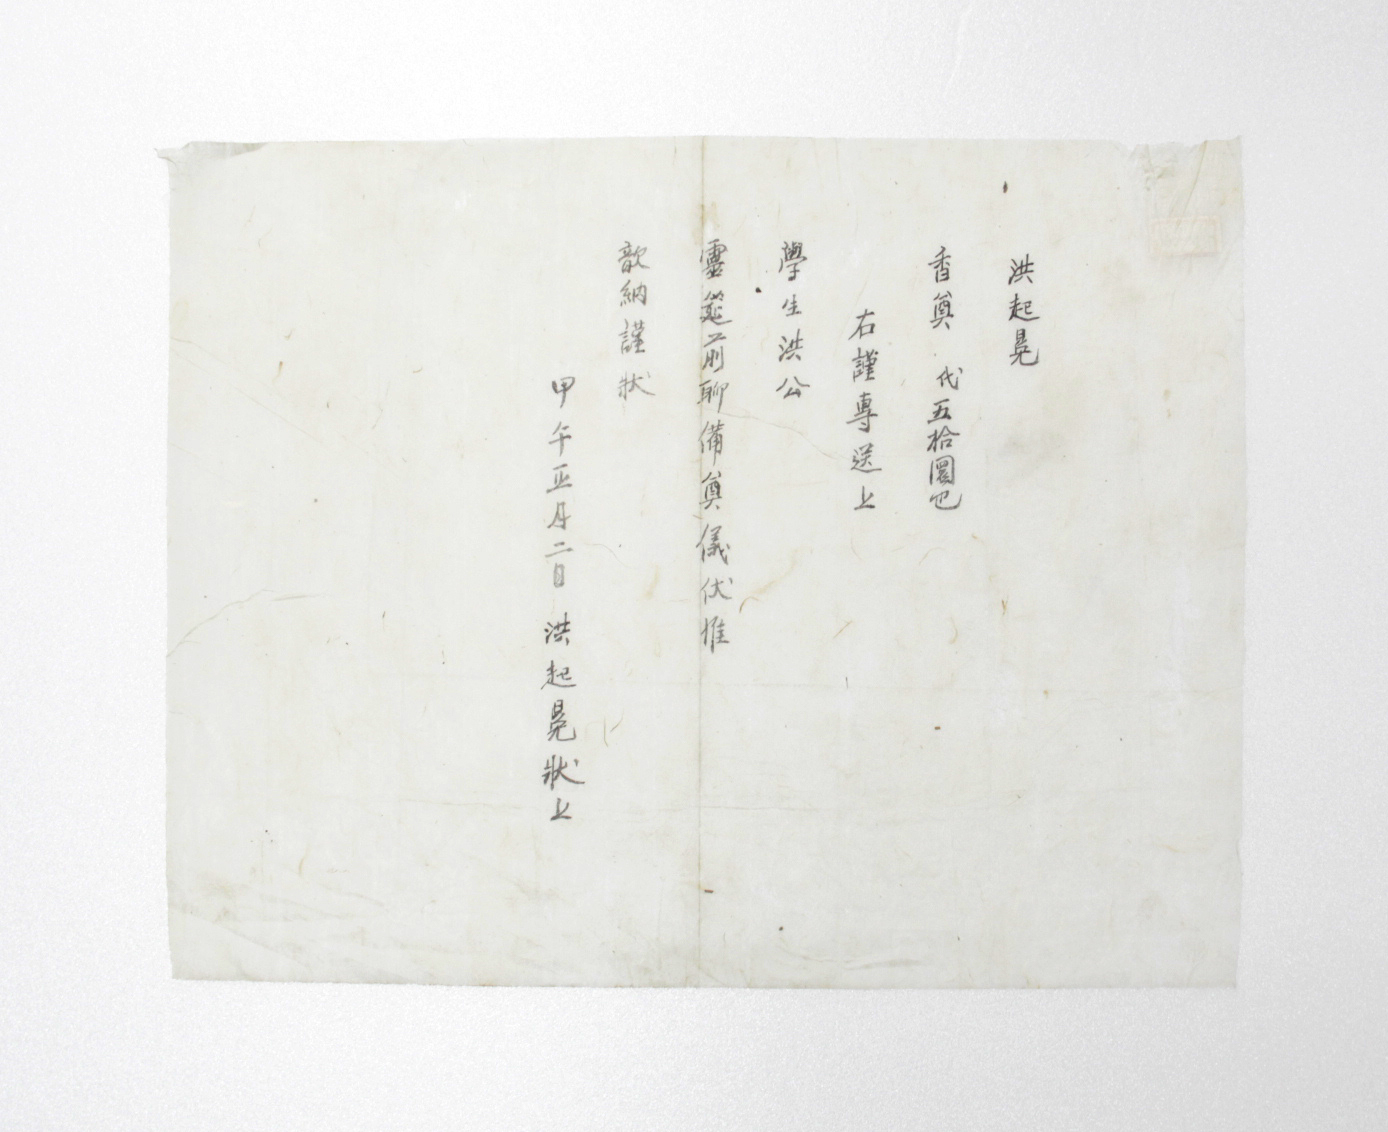 洪起晃
香奠 代五拾圜也
右謹專送上
學生洪公
靈筵前聊備奠儀伏惟
歆納謹狀
甲午正月二日 洪起晃狀上